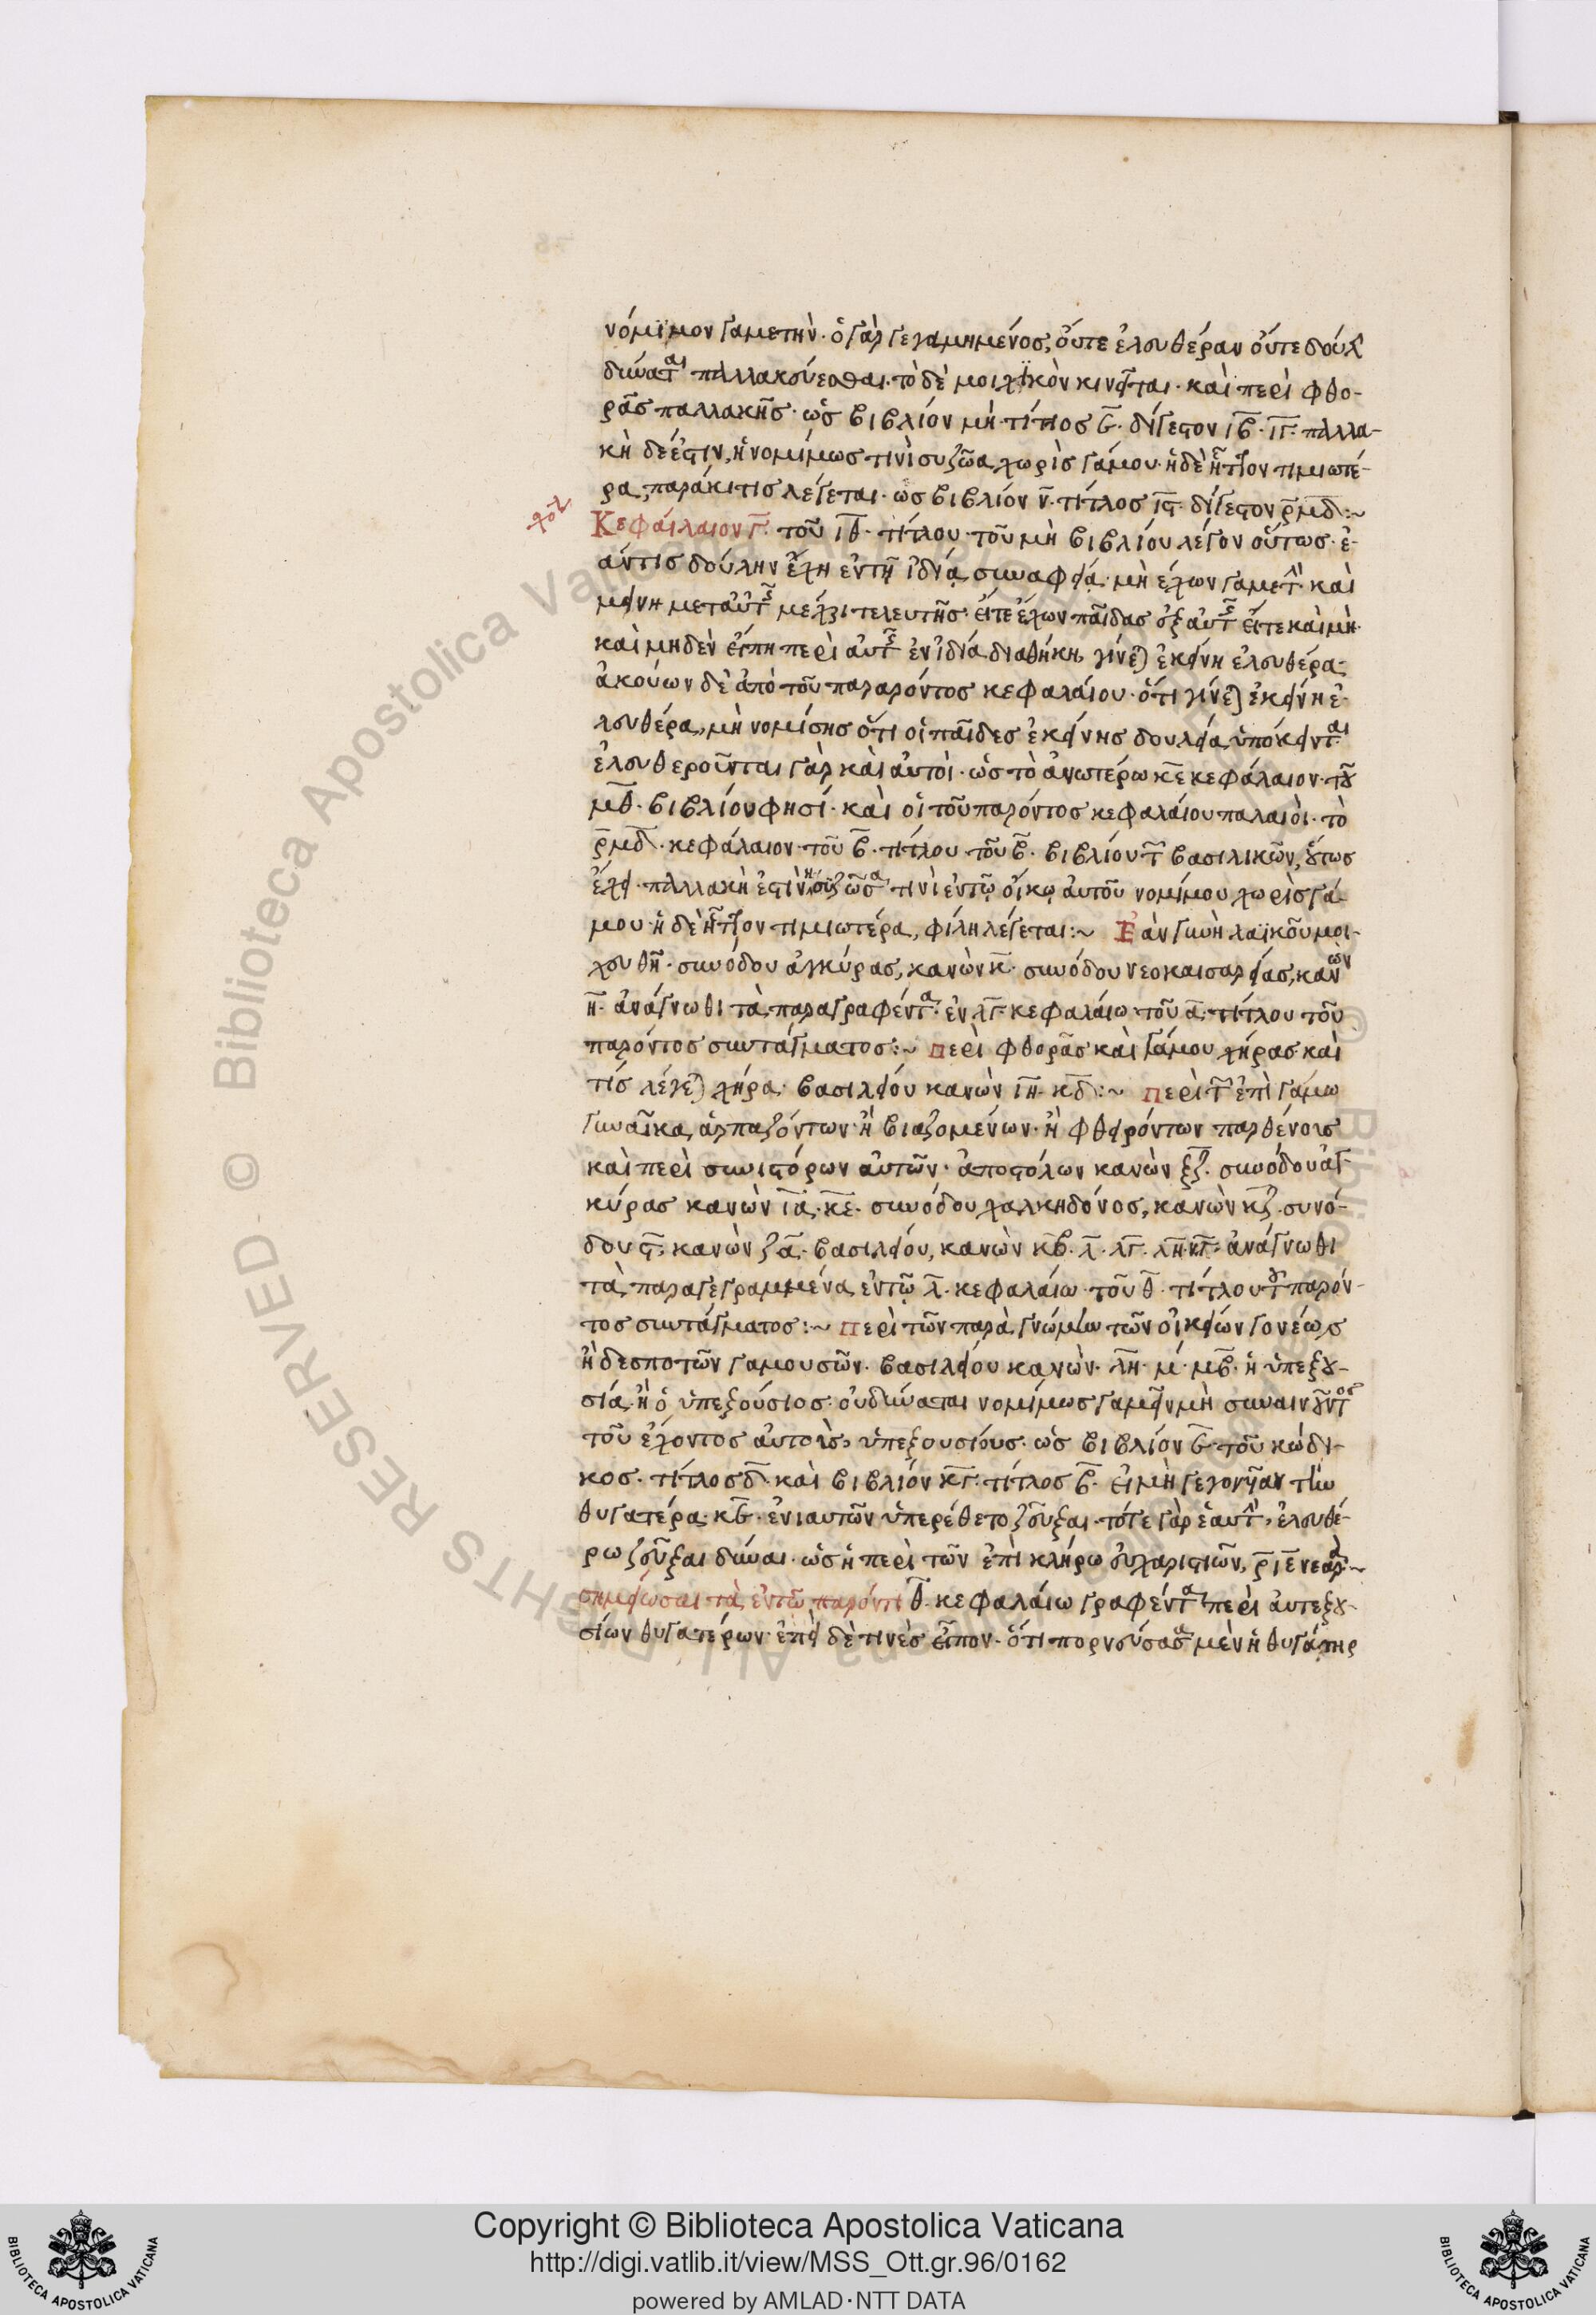 νόμϊμον γαμετὴν· ὁ γὰρ γεγαμημένος, οὔτε ἐλευθέραν οὔτε δούλ
δύναται παλλακεύεσθαι· τὸ δὲ μοιχϊκὸν κινεῖται· καὶ περὶ φθο-
ρᾶς παλλακῆς· ὡς βιβλίον μη· τίτλος ϛ· δίγεστον ιβ· ιγ· παλλα-
κὴ δέ ἐστιν, ἡ νομίμως τινὶ συζῶσα χωρὶς γάμου· ἡ δὲ ἧττον τιμιωτέ-
ρα, παράκιτις λέγεται· ὡς βιβλίον ν· τίτλος ιϛ· δίγεστον ρμδ:~
σχόλ
Κεφάλαιον γ· τοῦ ιθ· τίτλου· τοῦ μη βιβλίου λέγον οὕτως· ἐ-
άν τις δούλην ἔχη ἐν τῆ ἰδία συναφεία· μὴ ἔχων γαμετὴν· καὶ
μείνη μετ' αὐτῆς μέχρι τελευτῆς· εἴτε ἔχων παῖδας ἐξ αὐτῆς εἴτε καὶ μὴ·
καὶ μηδὲν εἴπη περὶ αὐτῆς ἐν ἰδία διαθήκη, γίνεται ἐκείνη ἐλευθέρα·
ἀκούων δὲ ἀπὸ τοῦ παρόντος κεφαλαίου· ὅτι γίνεται ἐκείνη ἐ-
λευθέρα, μὴ νομίσης ὅτι οἱ παῖδες ἐκείνης δουλεία ὑπόκεινται·
ἐλευθεροῦνται γὰρ καὶ αὐτοὶ· ὡς τὸ ἀνωτέρω κε κεφάλαιον· τοῦ
μθ· βιβλίου φησί· καὶ οἱ τοῦ παρόντος κεφαλαίου παλαιοὶ· τὸ
ρμδ· κεφάλαιον· τοῦ β· τίτλου· τοῦ β· βιβλίου τῶν βασιλικῶν, οὕτως
ἔχει· παλλακὴ ἐστὶν ἡ συζῶσα τινὶ ἐν τῶ οἴκω αὐτοῦ νομίμου χωρὶς γά-
μου· ἡ δὲ ἧττον τιμιωτέρα, φίλη λέγεται:~ Ἐὰν γυνὴ λαϊκοῦ μοι-
χευθῆ· συνόδου ἀγκύρας, κανὼν κ· συνόδου νεοκαισαρείας, κανὼν
η· ἀνάγνωθι τὰ παραγραφέντα· ἐν λγ· κεφαλαίω τοῦ α· τίτλου τοῦ
παρόντος συντάγματος:~ περὶ φθορᾶς καὶ γάμου χήρας· καὶ
τίς λέγεται χήρα· βασιλείου κανὼν ιη· κδ:~ περὶ τῶν ἐπὶ γάμω
γυναῖκα ἁρπαζόντων· ἢ βιαζομένων· ἢ φθειρόντων παρθένους
καὶ περὶ συνιστόρων αὐτῶν· ἀποστόλων κανὼν ξζ· συνόδου ἀγ-
κύρας κανὼν ια· κε· συνόδου χαλκηδόνος, κανὼν κζ· συνό-
δου ϛ· κανὼν ϟα· βασιλείου, κανὼν κβ· λ· λγ· λη· νγ· ἀνάγνωθι
τὰ παραγεγραμμένα ἐν τῶ λ· κεφαλαίω τοῦ θ· τίτλου τοῦ παρόν-
τος συντάγματος:~ περὶ τῶν παρὰ γνώμην τῶν οἰκείων γονέων
ἢ δεσποτῶν γαμουσῶν· βασιλείου κανὼν· λη· μ· μβ· ἡ ὑπεξου-
σία, ἢ ὁ ὑπεξούσιος· οὐ δύναται νομίμως γαμεῖν μὴ συναινοῦντος
τοῦ ἔχοντος αὐτοὺς ὑπεξουσίους· ὡς βιβλίον ϛ· τοῦ κώδι-
κος· τίτλος δ· καὶ βιβλίον κγ· τίτλος β· εἰ μὴ γεγονυῖαν τὴν
θυγατέρα κϛ· ἐνιαυτῶν ὑπερέθετο ζεῦξαι· τότε γὰρ ἑαυτὴν, ἐλευθέ-
ρω ζεῦξαι δύναται· ὡς ἡ περὶ τῶν ἐπὶ κλήρω εὐχαριστιῶν, ριε νεαρὰ:~
σημείωσαι τὰ ἐν τῶ παρόντι θ· κεφαλαίω γραφέντα περὶ αὐτεξου-
σίων θυγατέρων· ἐπεὶ δὲ τινὲς εἶπον· ὅτι πορνεύσασα μὲν ἡ θυγάτηρ
Copyright © Biblioteca Apostolica Vaticana
http://digi.vatlib.it/view/MSS_Ott.gr.96/0162
powered by AMLAD·NTT DATA